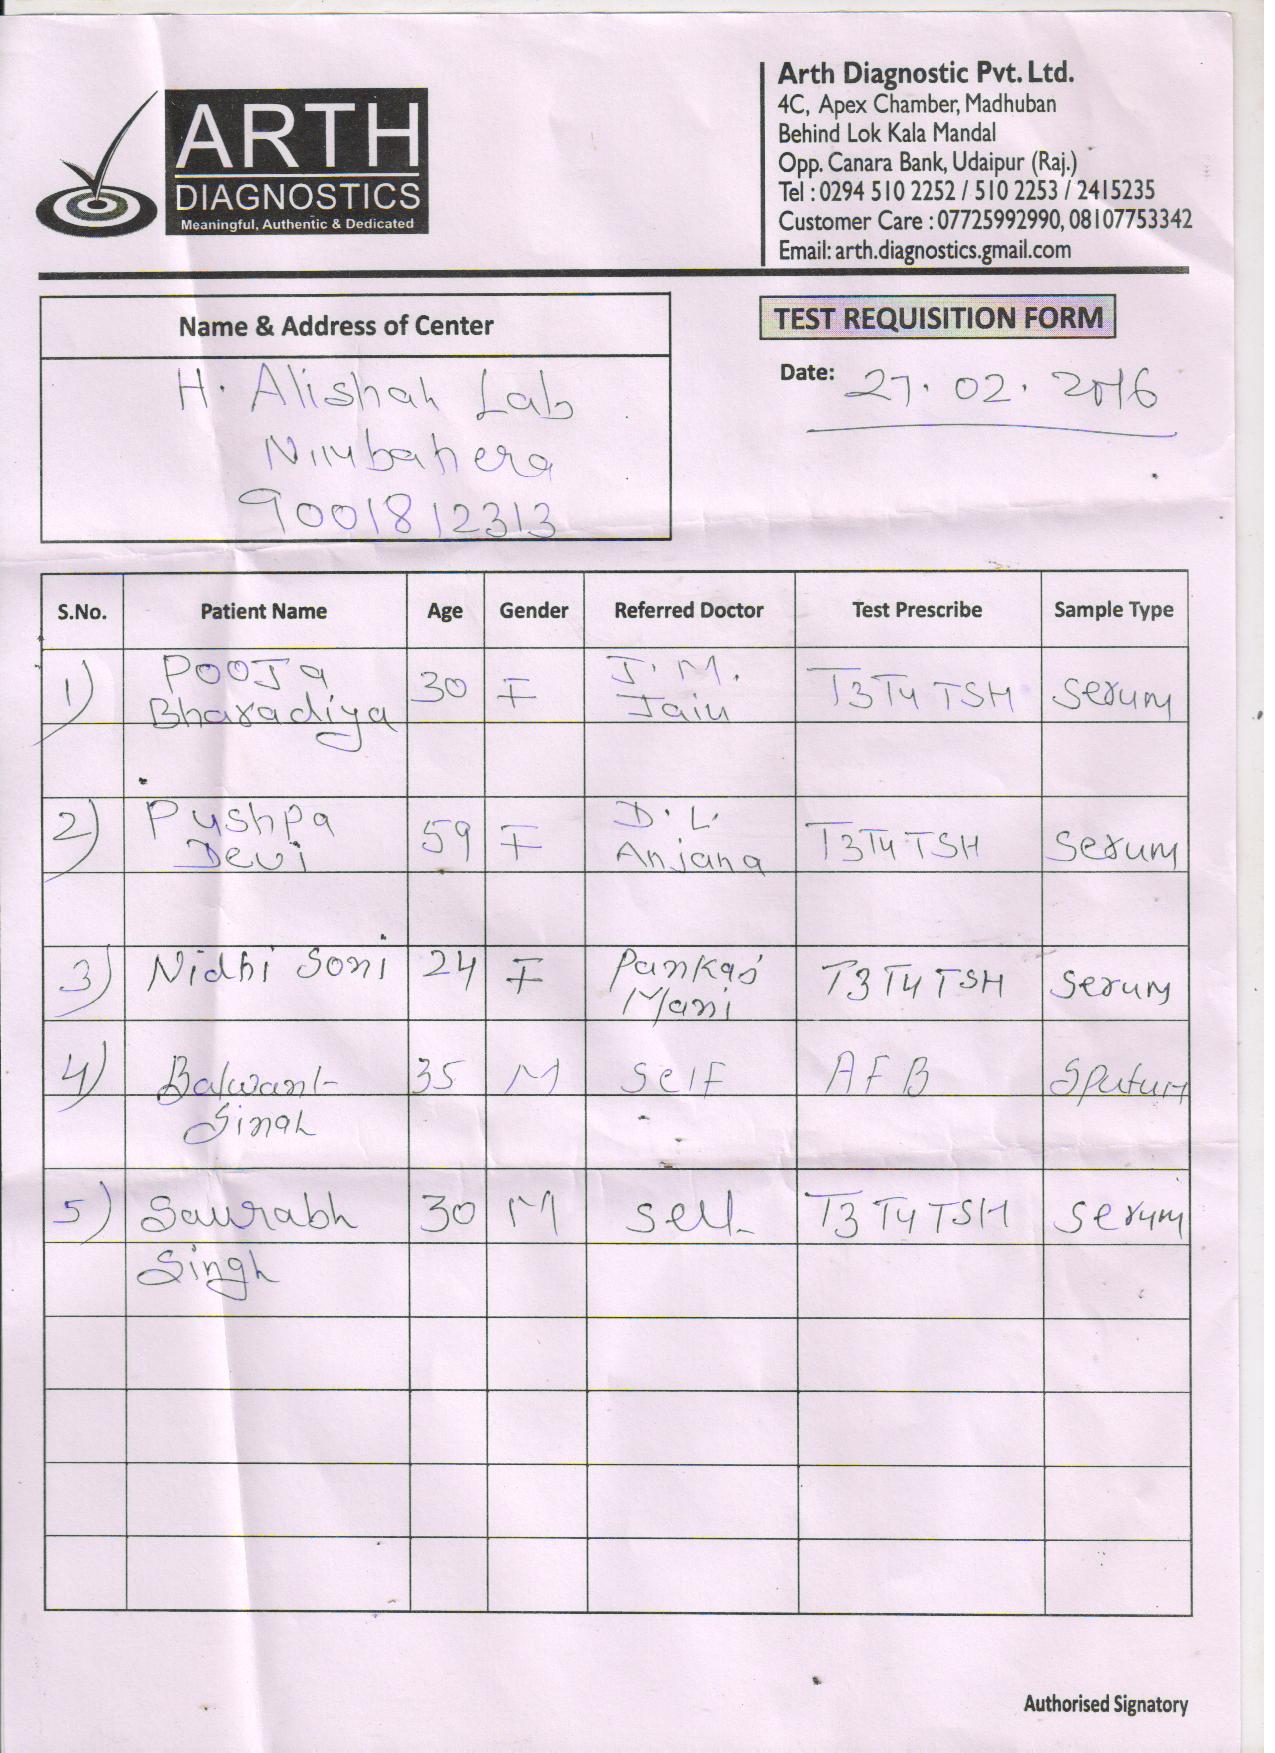 ARTH
DIAGNOSTICS
Meaningful, Authentic & Dedicated
Arth Diagnostic Pvt. Ltd.
4C, Apex Chamber, Madhuban
Behind Lok Kala Mandal
Opp. Canara Bank, Udaipur (Raj.)
Tel : 0294 510 2252 / 510 2253 / 2415235
Customer Care : 07725992990, 08107753342
Email: arth.diagnostics.gmail.com
Name & Address of Center
H. Alishah Lab
Nimbahera
9001812313
TEST REQUISITION FORM
Date: 27.02.2016
S.No. Patient Name Age Gender Referred Doctor Test Prescribe Sample Type
1) Pooja Bharadiya 30 F J.M. Jain T3 T4 TSH Serum
2) Pushpa Devi 59 F D.L. Anjana T3 T4 TSH Serum
3) Nidhi Soni 24 F Pankaj Mani T3 T4 TSH Serum
4) Balwant Singh 35 M Self AFB Sputum
5) Saurabh Singh 30 M Self T3 T4 TSH Serum
Authorised Signatory